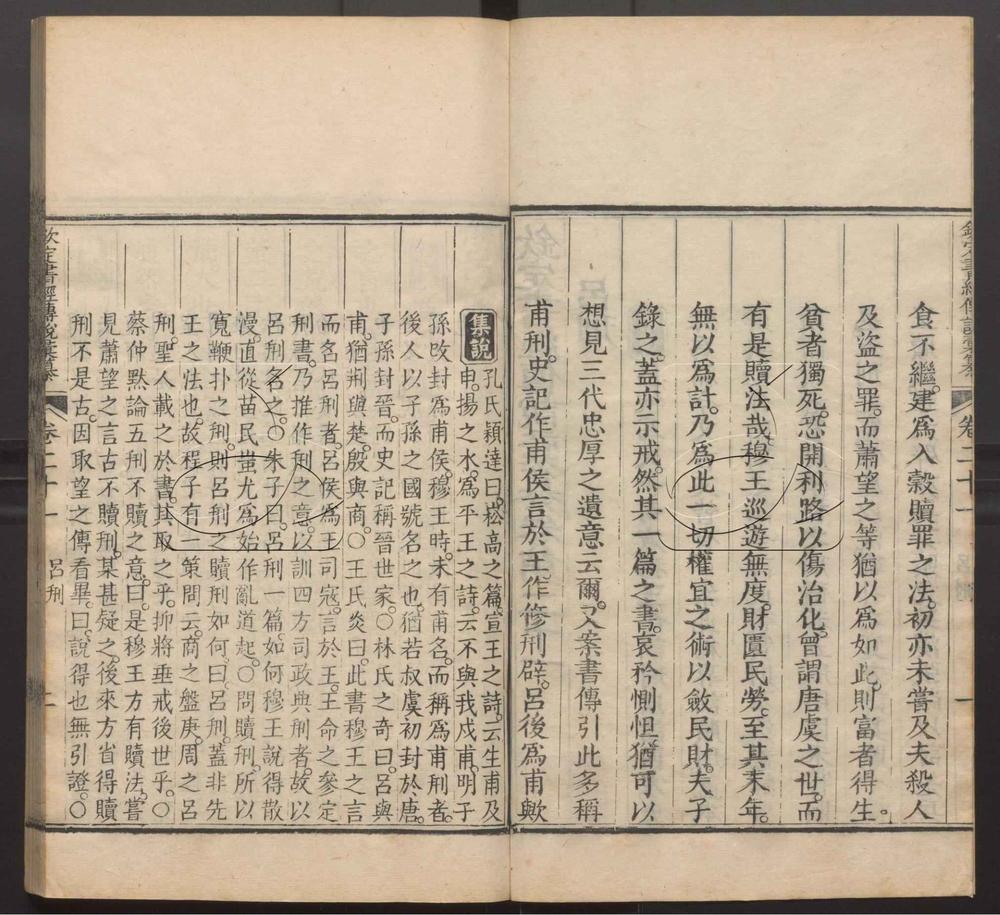 欽定書經傳說彙纂 卷二十一 一
食不繼。建爲入榖贖罪之法。初亦未嘗及夫殺人
及盜之罪。而蕭望之等猶以爲如此。則富者得生。
貧者獨死。恐開利路以傷治化。曾謂唐虞之世。而
有是贖法哉。穆王巡遊無度。財匱民勞。至其末年。
無以爲計。乃爲此一切權宜之術以斂民財。夫子
錄之。蓋亦示戒。然其一篇之書。哀矜惻怛。猶可以
想見三代忠厚之遺意云爾。又案書傳引此多稱
甫刑。史記作甫侯言於王。作修刑辟。呂後爲甫歟
集說 孔氏穎達曰。崧高之篇。宣王之詩。云生甫及
申。揚之水。爲平王之詩。云不與我戍甫。明子
孫改封爲甫侯。穆王時。未有甫名。而稱爲甫刑者。
後人以子孫之國號名之也。猶若叔虞初封於唐。
子孫封晉。而史記稱晉世家。○林氏之奇曰。呂與
甫。猶荆與楚。殷與商。○王氏炎曰。此書穆王之言
而名呂刑者。呂侯爲王司寇。言於王。王命之參定
刑書。乃推作刑之意。以訓四方司政典刑者。故以
呂刑名之。○朱子曰。呂刑一篇。如何穆王說得散
漫。直從苗民蚩尤爲始作亂道起。○問贖刑所以
寬鞭扑之刑。則呂刑之贖刑如何。曰。呂刑。蓋非先
王之法也。故程子有一策問云。商之盤庚。周之呂
刑。聖人載之於書。其取之乎。抑將垂戒後世乎。○
蔡仲默論五刑不贖之意。曰。是穆王方有贖法。嘗
見蕭望之言古不贖刑。某甚疑之。後來方省得贖
刑不是古。因取望之傳看畢。曰。說得也無引證。○
欽定書經傳說彙纂 卷二十一 呂刑 二